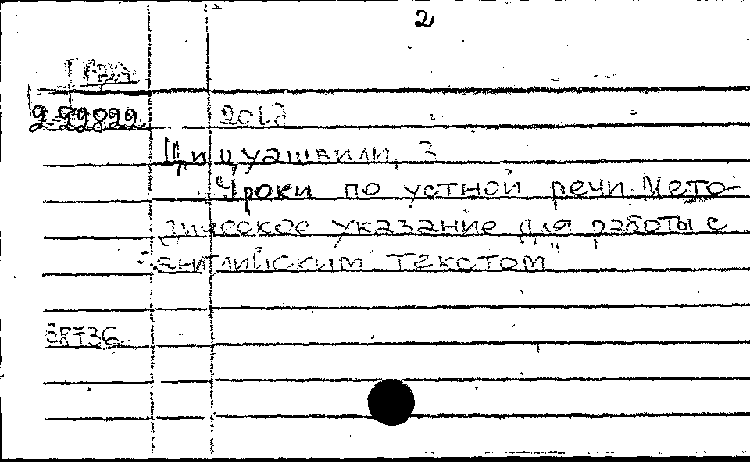 2
2012
Цицуашвили, З
"Уроки по устной речи. Мето-
дическое указание для работы с
английским текстом"
68736